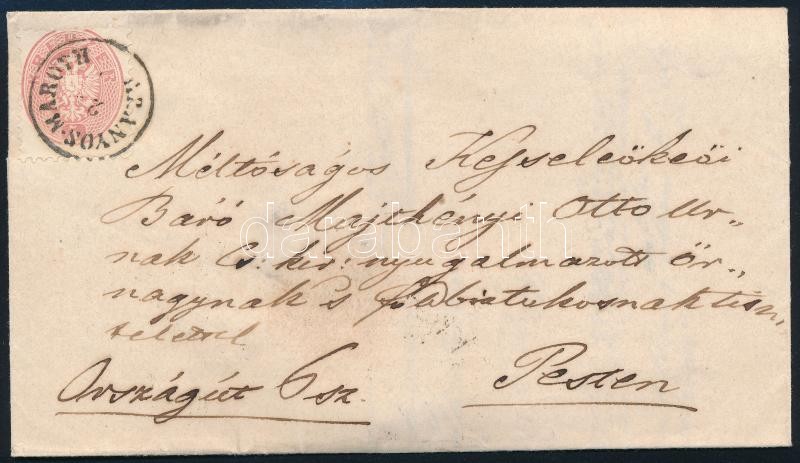 ARANYOS-MAROTH
Méltóságos Kesseleökeöi
Báró Majthényi Otto Ur„
nak Cs. kir: nyugalmazott őr„
nagynak s földbirtokosnak tisz„
telettel
Országút 6 sz.
Pesten
darabanth